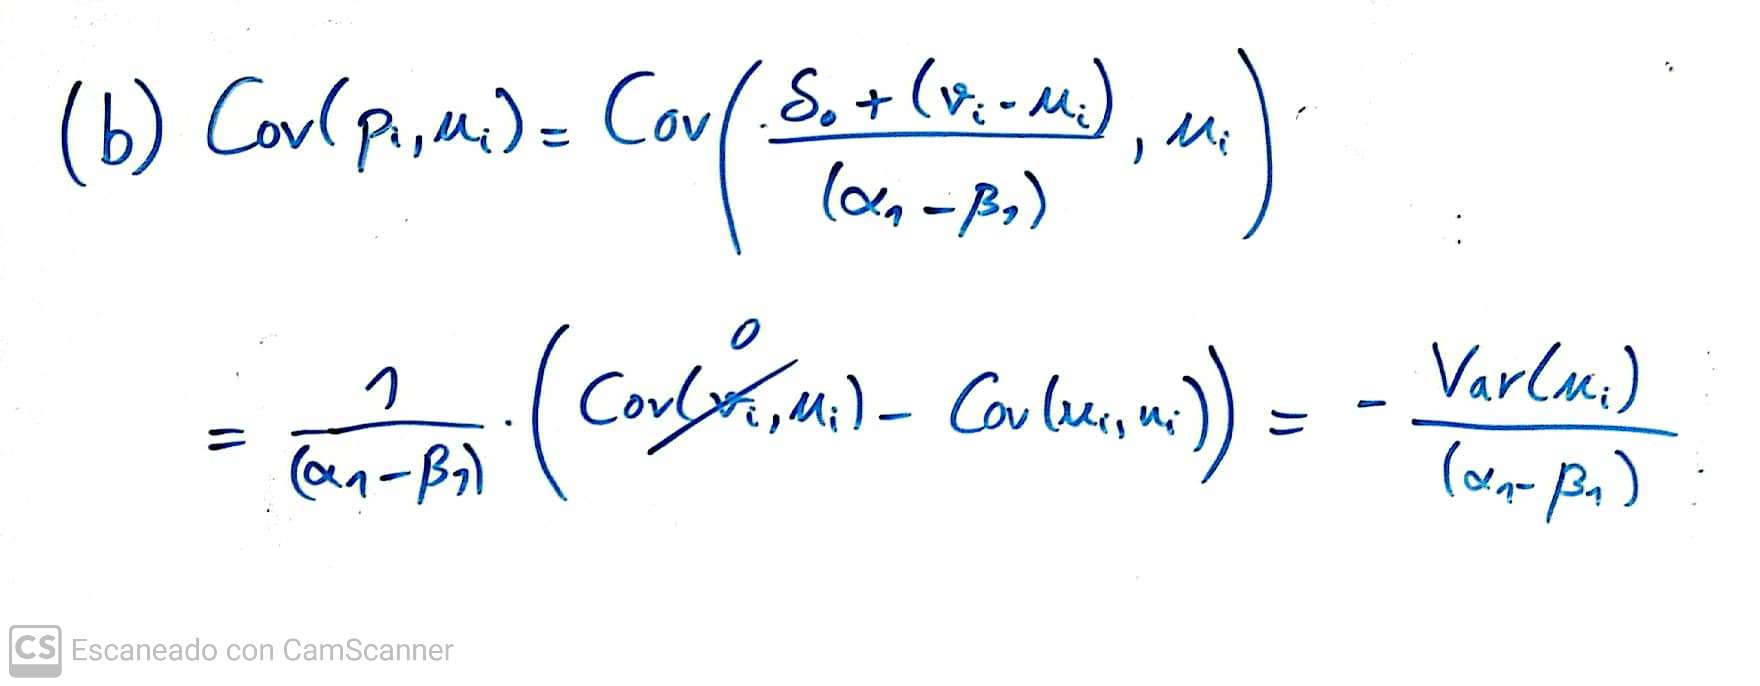 (b) Cov(pᵢ, uᵢ) = Cov( (δ₀ + (vᵢ - uᵢ)) / (α₁ - β₁) , uᵢ )
= 1 / (α₁ - β₁) · ( Cov(vᵢ, uᵢ) 0 - Cov(uᵢ, uᵢ) ) = - Var(uᵢ) / (α₁ - β₁)
CS Escaneado con CamScanner